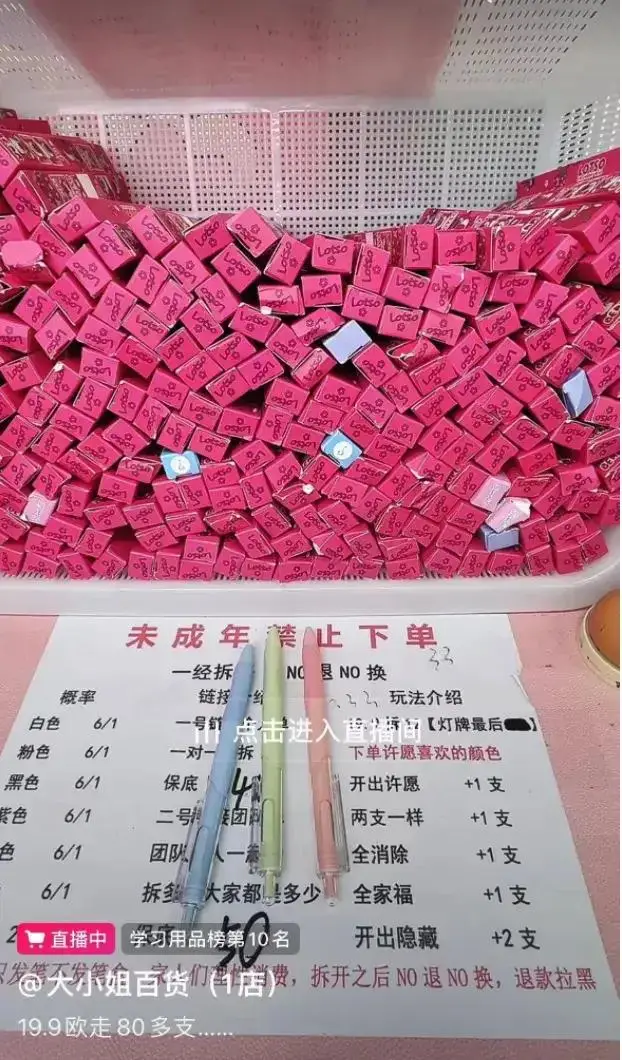 Lotso
LOTSO
未成年禁止下单
一经拆 NO退NO换
概率
玩法介绍
白色 6/1
一号
【灯牌最后
粉色 6/1
一对一 拆
下单许愿喜欢的颜色
黑色 6/1
保底
开出许愿 +1支
紫色 6/1
二号 团
两支一样 +1支
色 6/1
团队 人一
全消除 +1支
6/1
拆多 大家都 多少
全家福 +1支
保底 50
开出隐藏 +2支
只发笔不发笔盒 家人们理性消费，拆开之后NO退NO换，退款拉黑
点击进入直播间
直播中
学习用品榜第10名
@大小姐百货（1店）
19.9欧走80多支……